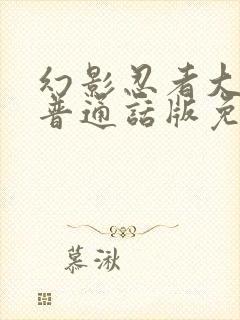 幻影忍者大
普通話版免
慕湫